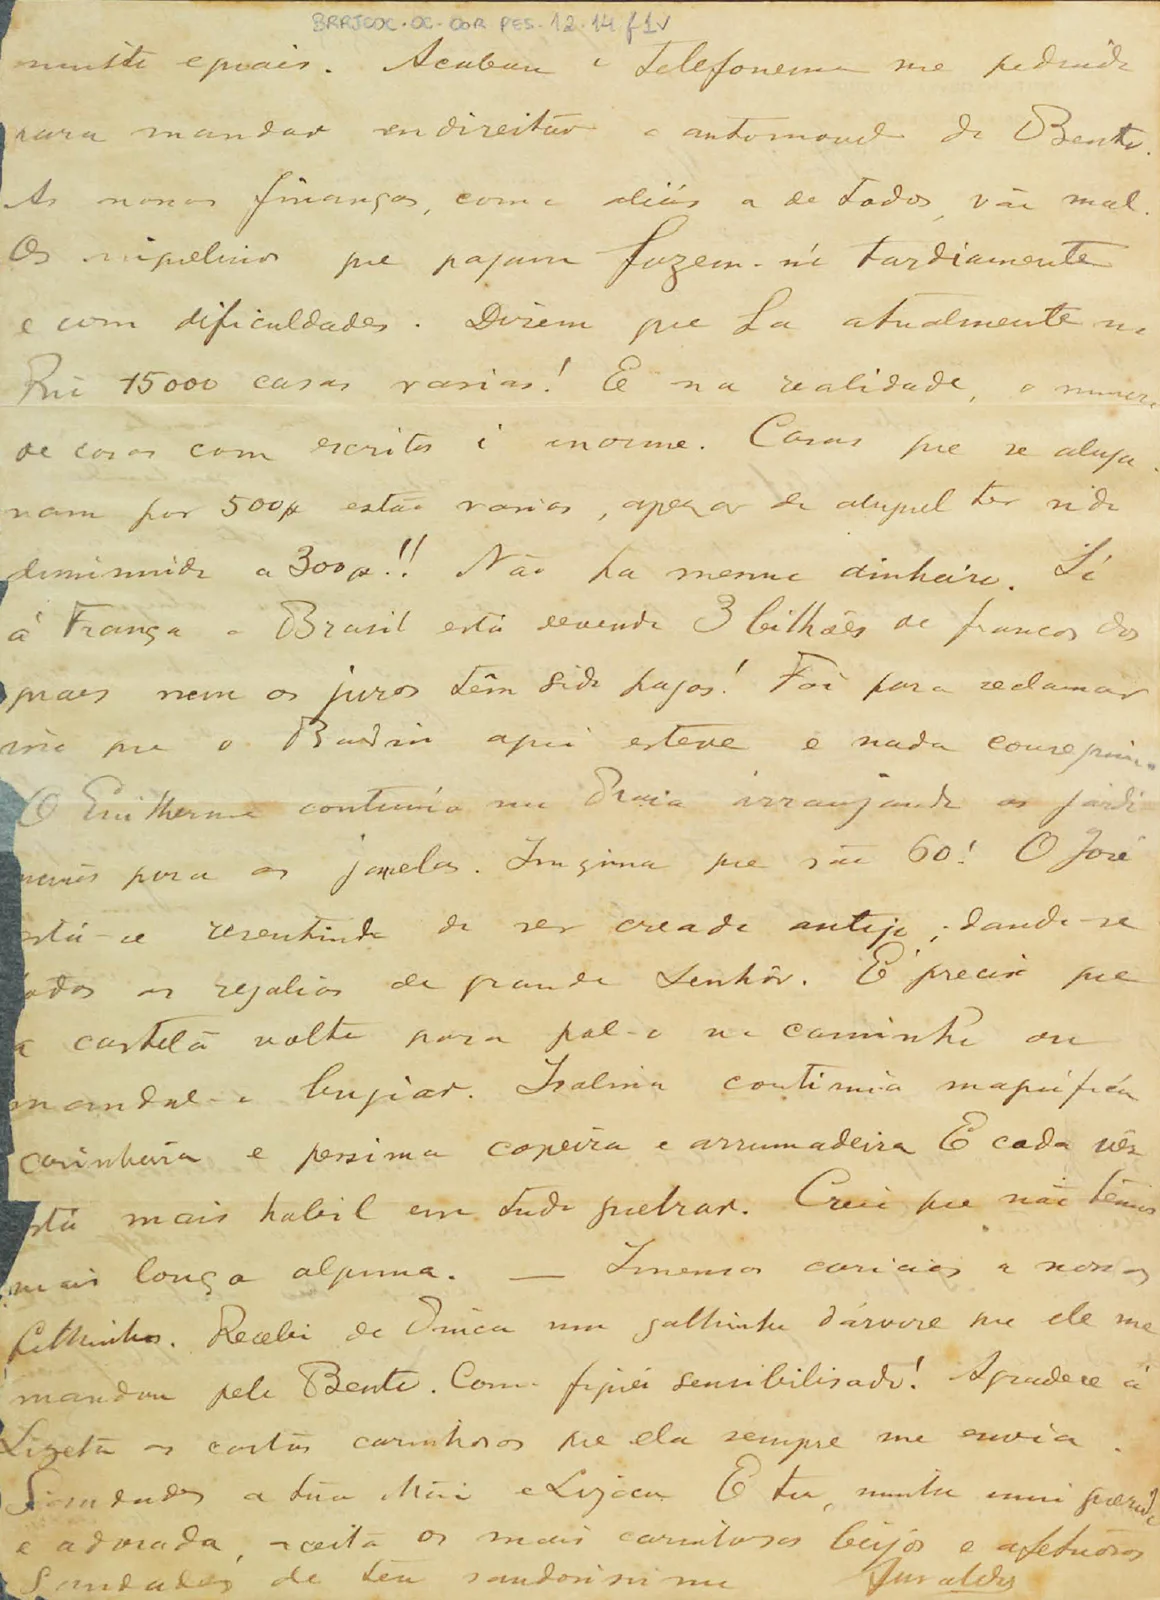 BRRJCOC.OC.COR PES.12.14 f1v
muito eguais. Acabam o telefonema me pedindo
para mandar endireitar o automovel do Bento.
As nossas finanças, como aliás a de todos, vão mal.
Os inquilinos que pagam fazem-no tardiamente
e com dificuldades. Dizem que ha atualmente no
Rio 15000 casas vasias! E na realidade, o numero
de casas com escritos é enorme. Casas que se aluga-
vam por 500$ estão vasias, apezar do aluguel ter sido
diminuido a 300$!! Não ha mesmo dinheiro. Só
á França o Brasil está devendo 3 bilhões de francos dos
quaes nem os juros têm sido pagos! Foi para reclamar
isso que o aqui esteve e nada conseguiu.
O Guilherme continúa na Praia arranjando as jardi
neiras para as janelas. Imagina que são 60! O José
está-se resentindo de ser creado antigo, dando-se
todas as regalias de grande Senhôr. É preciso que
a castelã volte para pol-o no caminho ou
mandal-o bugiar. Isalina continúa magnifica
cosinheira e pessima copeira e arrumadeira E cada vês
está mais habil em tudo quebrar. Creio que não têmos
mais louça alguma. — Imensas caricias a nossos
filhinhos. Recebi do um galhinho dárvore que ele me
mandou pelo Bento. Como fiquei sensibilisado! Agradece á
Lizeta as cartas carinhosas que ela sempre me envia.
Saudades a túa Mãi e E tu, minha mui querida
e adorada, aceita os mais carinhosos beijos e afetuósas
Saudades do teu saudosissimo